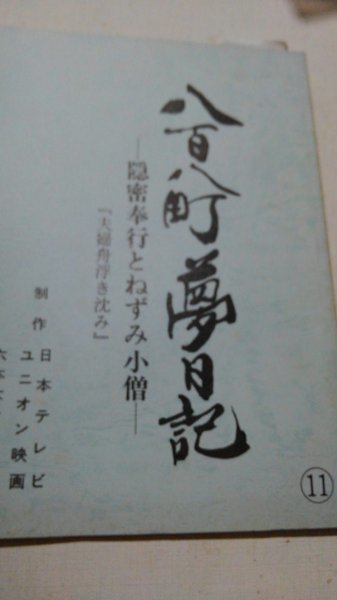 八百八町夢日記
―隠密奉行とねずみ小僧―
『夫婦舟浮き沈み』
制作
日本テレビ
ユニオン映画
⑪